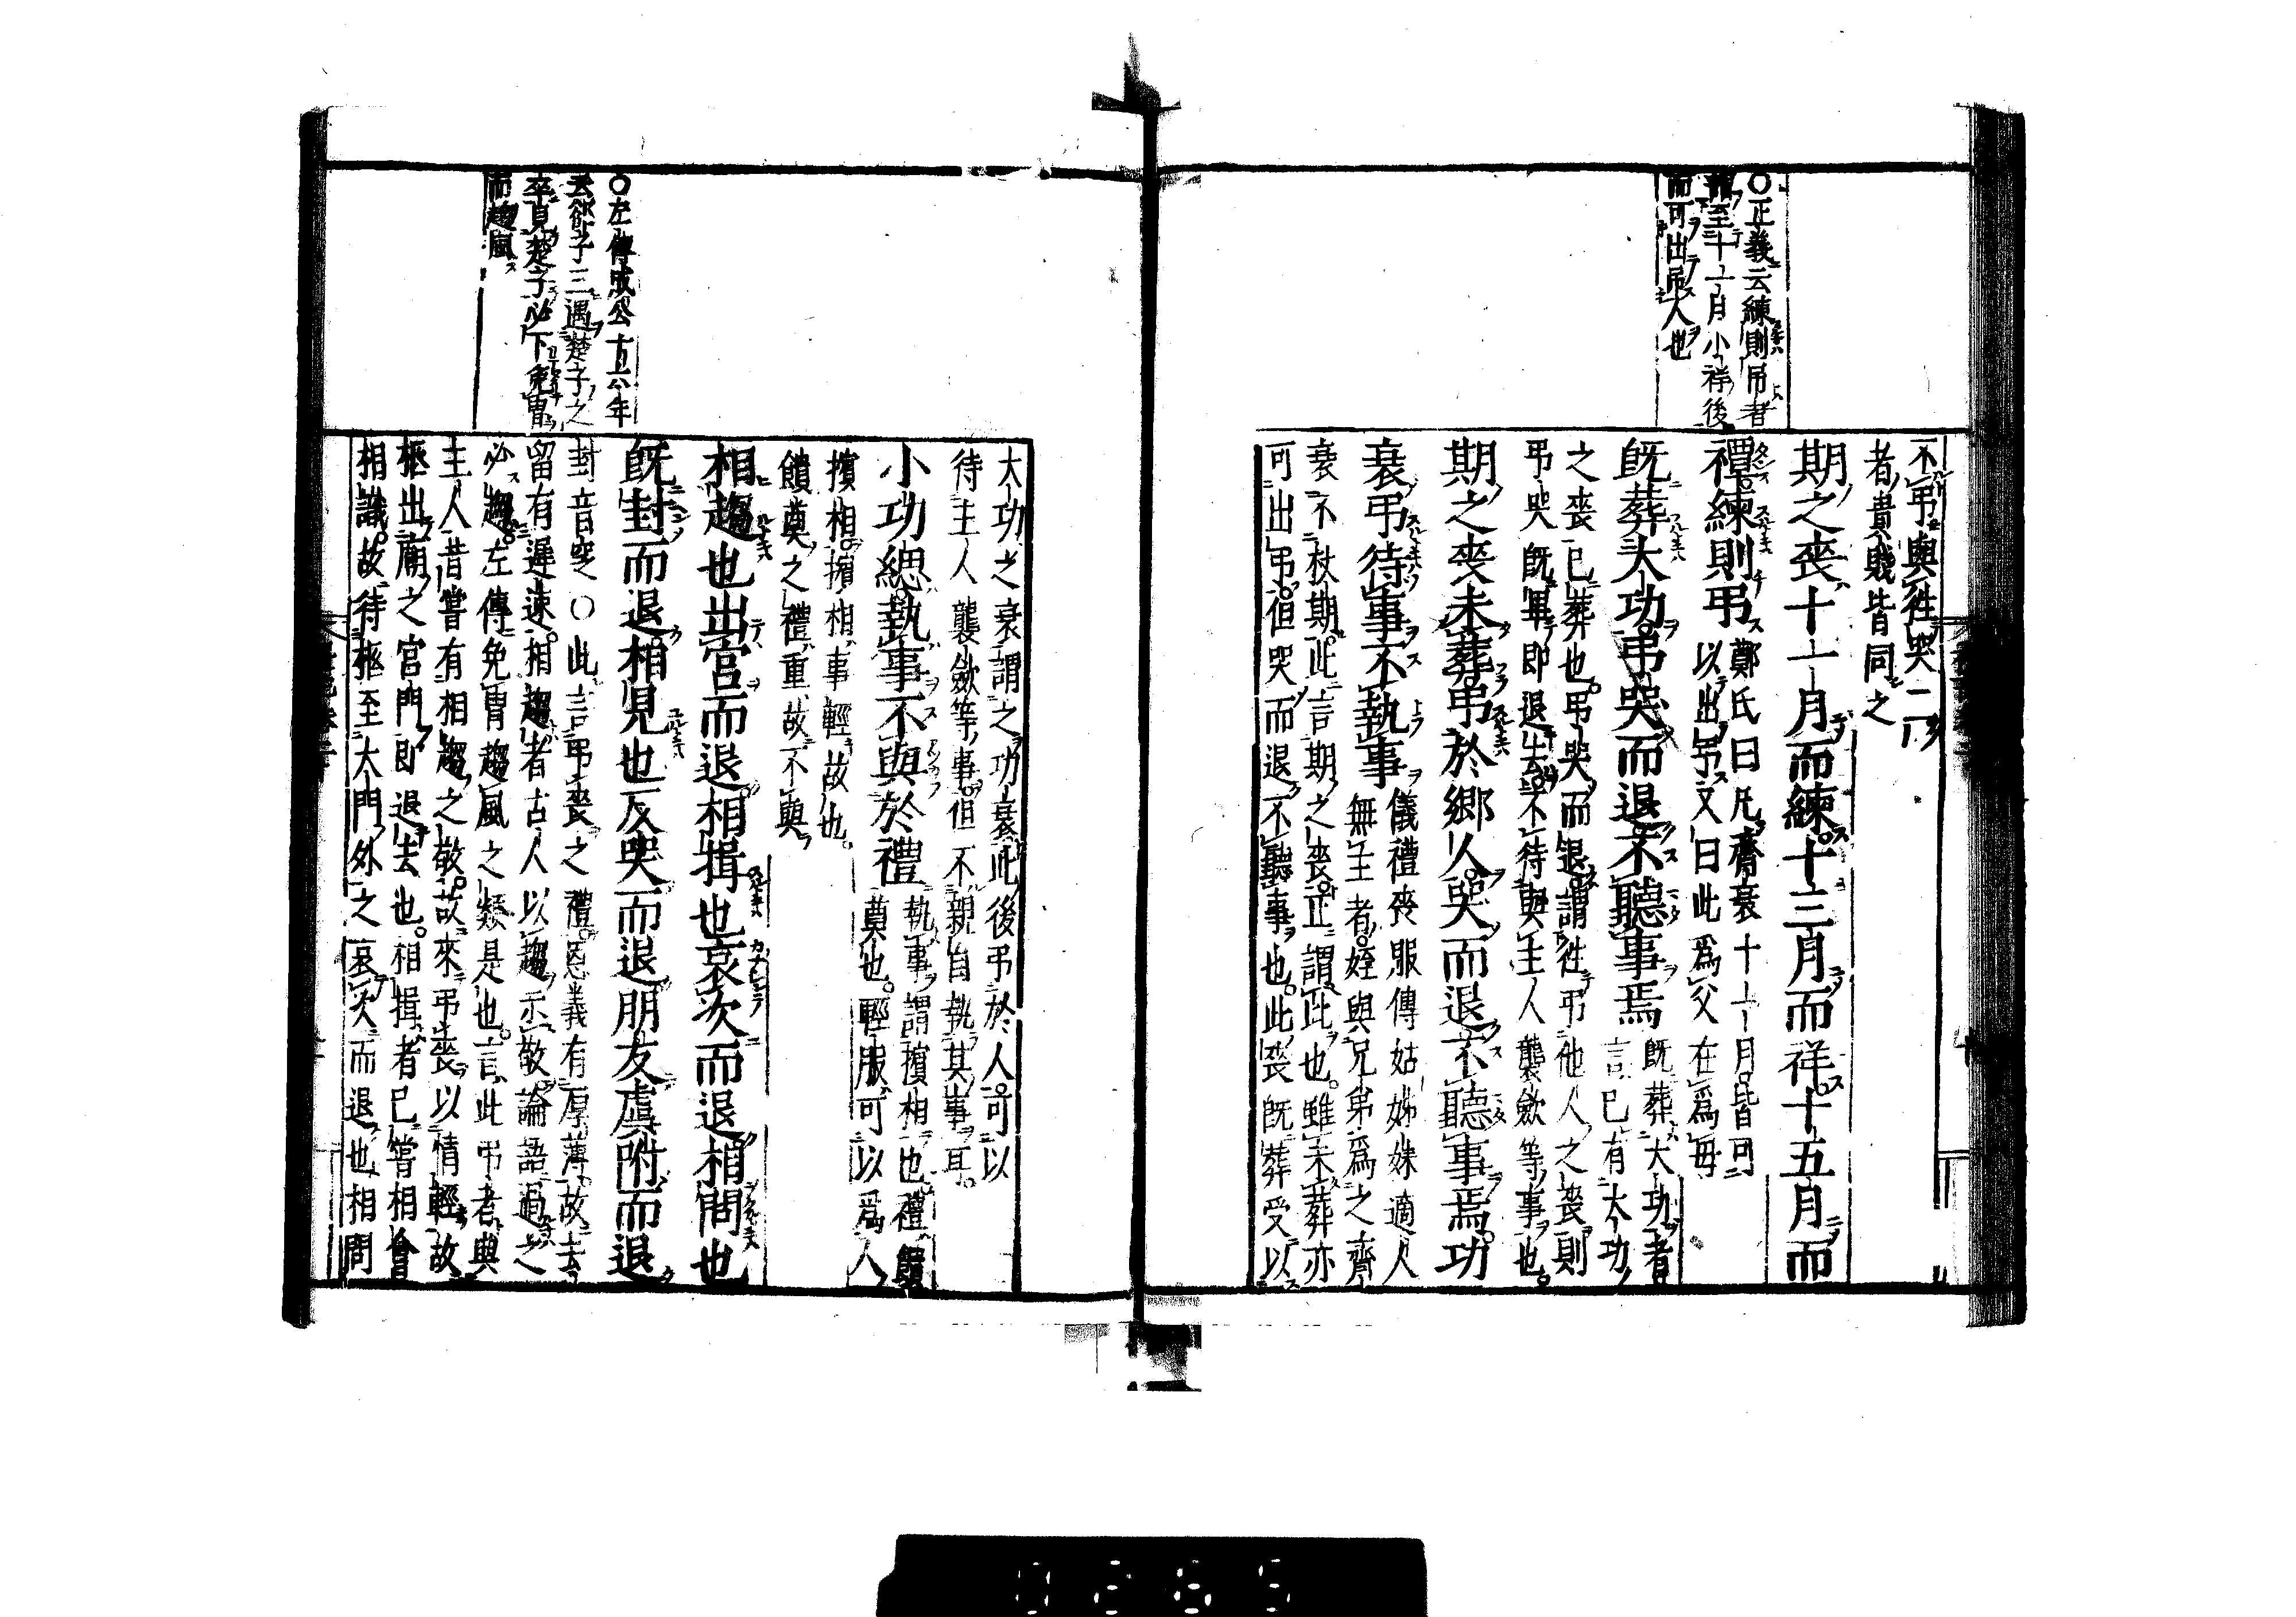 ○正義云練則吊者
謂至十一月小祥後
而可出吊人也
不弔與往哭二
者貴賤皆同之
期之喪十一月而練十三月而祥十五月而
禫練則弔
鄭氏曰凡齊衰十一月皆可
以出弔又曰此爲父在爲母
既葬大功弔哭而退不聽事焉
既葬大功者
言已有大功
之喪已葬也弔哭而退謂往弔他人之喪則
弔哭既畢即退去不待與主人襲斂等事也
期之喪未葬弔於郷人哭而退不聽事焉功
衰弔待事不執事
儀禮喪服傳姑姊妹適人
無主者姪與兄弟爲之齊
衰不杖期此言期之喪正謂此也雖未葬亦
可出弔但哭而退不聽事也此喪既葬受以
○左傳成公十六年
云郤子三遇楚子之
卒見楚子必下免冑
而趨風
大功之衰謂之功衰此後弔於人可以
待主人襲斂等事但不親自執其事耳
小功緦執事不與於禮
執事謂擯相也禮饋
奠也輕服可以爲人
擯相擯相事輕故也
饋奠之禮重故不與
相趨也出宮而退相揖也哀次而退相問也
既封而退相見也反哭而退朋友虞附而退
封音窆○此言弔喪之禮恩義有厚薄故去
留有遲速相趨者古人以趨示敬論語過之
必趨左傳免冑趨風之類是也言此弔者與
主人昔嘗有相趨之敬故來弔喪以情輕故
柩出廟之宮門即退去也相揖者已嘗相會
相識故待柩至大門外之哀次而退也相問